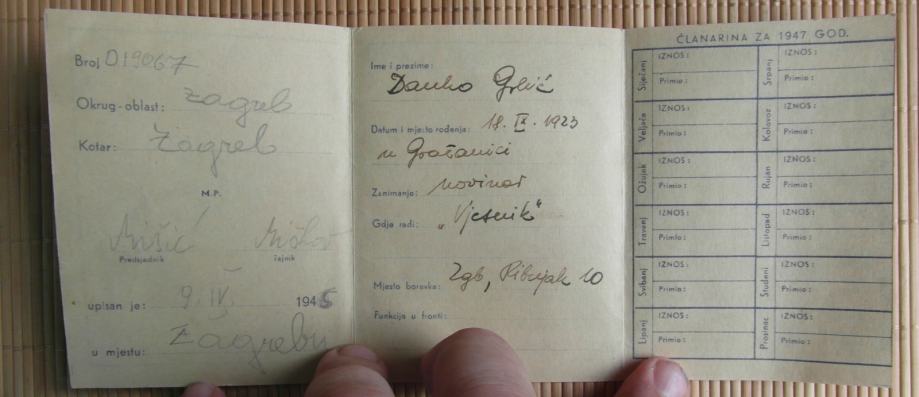 Broj 019067
Okrug-oblast: Zagreb
Kotar: Zagreb
M.P.
Mišić
Predsjednik Tajnik
upisan je: 9. IV. 1945
u mjestu: Zagrebu
Ime i prezime:
Danko Grlić
Datum i mjesto rođenja: 18. IX. 1923
u Gračanici
Zanimanje: novinar
Gdje radi: „Vjesnik"
Mjesto boravka: Zgb, Ribnjak 10
Funkcija u fronti:
ČLANARINA ZA 1947 GOD.
Siječanj IZNOS: Primio: Srpanj IZNOS: Primio:
Veljača IZNOS: Primio: Kolovoz IZNOS: Primio:
Ožujak IZNOS: Primio: Rujan IZNOS: Primio:
Travanj IZNOS: Primio: Listopad IZNOS: Primio:
Svibanj IZNOS: Primio: Studeni IZNOS: Primio:
Lipanj IZNOS: Primio: Prosinac IZNOS: Primio: